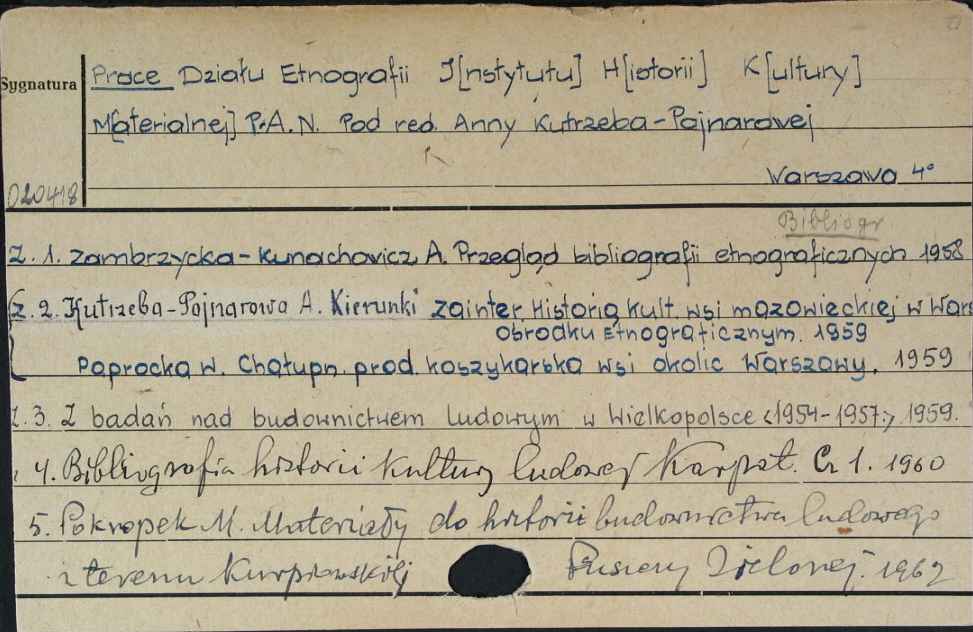 Sygnatura
Prace Działu Etnografii I[nstytutu] H[istorii] K[ultury]
M[aterialnej] P.A.N. Pod red. Anny Kutrzeba-Pojnarowej
Warszawa 4°
020418
Bibliogr
Z. 1. Zambrzycka-Kunachowicz A. Przegląd bibliografii etnograficznych 1958
Z. 2. Kutrzeba-Pojnarowa A. Kierunki zainter. Historią kult. wsi mazowieckiej w War
ośrodku Etnograficznym. 1959
Paprocka W. Chałupn. prod. koszykarska wsi okolic Warszawy. 1959
Z. 3. Z badań nad budownictwem ludowym w Wielkopolsce <1954-1957>, 1959.
4. Bibliografia historii kultury ludowej Karpat. Cz 1. 1960
5. Pokropek M. Materiały do historii budownictwa ludowego
z terenu Kurpiowskiej Puszczy Zielonej. 1962